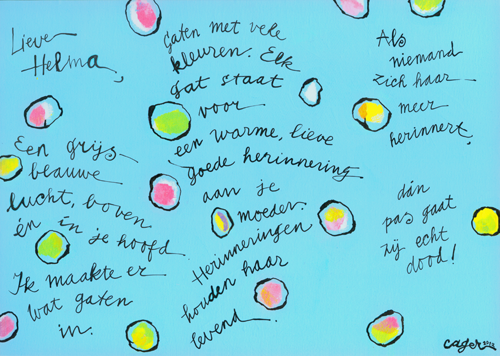 Lieve
Helma,
Een grijs-
blauwe
lucht, boven
én in je hoofd.
Ik maakte er
wat gaten
in.
Gaten met vele
kleuren. Elk
gat staat
voor
een warme, lieve
goede herinnering
aan je
moeder.
Herinneringen
houden haar
levend.
Als
niemand
zich haar
meer
herinnert,
dán
pas gaat
zij echt
dood!
Cager